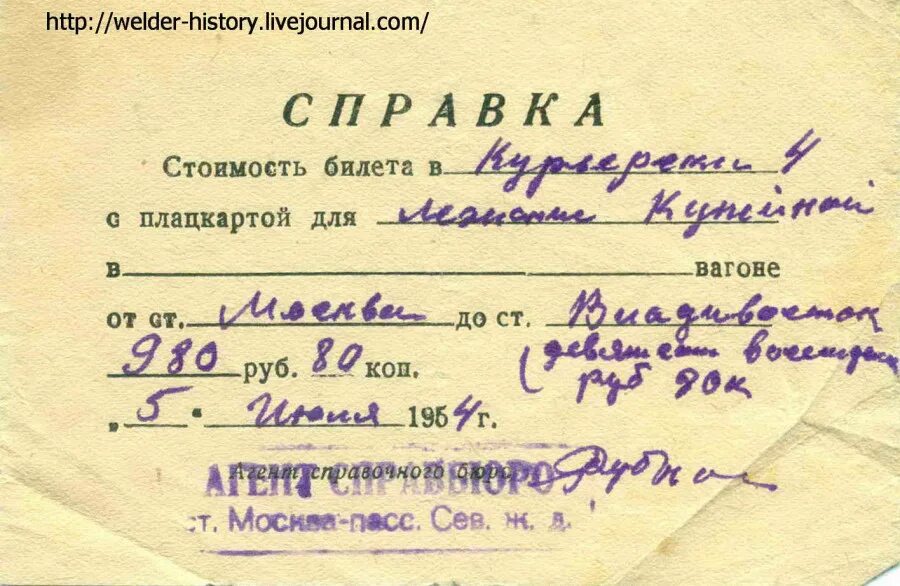 http://welder-history.livejournal.com/
СПРАВКА
Стоимость билета в Курьерски 4
с плацкартой для Купейной
в вагоне
от ст. Москва до ст. Владивосток
980 руб. 80 коп. (девятсот восемьдесят
руб 80к
„5“ Июля 1954 г.
Агент справочного бюро
АГЕНТ СПРАВБЮРО
ст. Москва-пасс. Сев. ж. д.